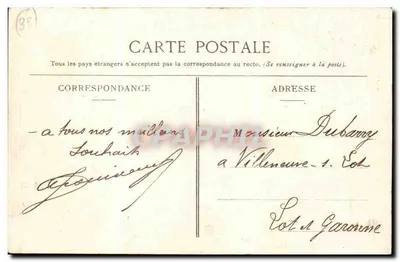 (38)
CARTE POSTALE
Tous les pays étrangers n'acceptent pas la correspondance au recto. (Se renseigner à la poste).
CORRESPONDANCE
ADRESSE
- a tous nos meilleurs
souhaits
Monsieur Dubarry
a Villeneuve-s. Lot
Lot et Garonne